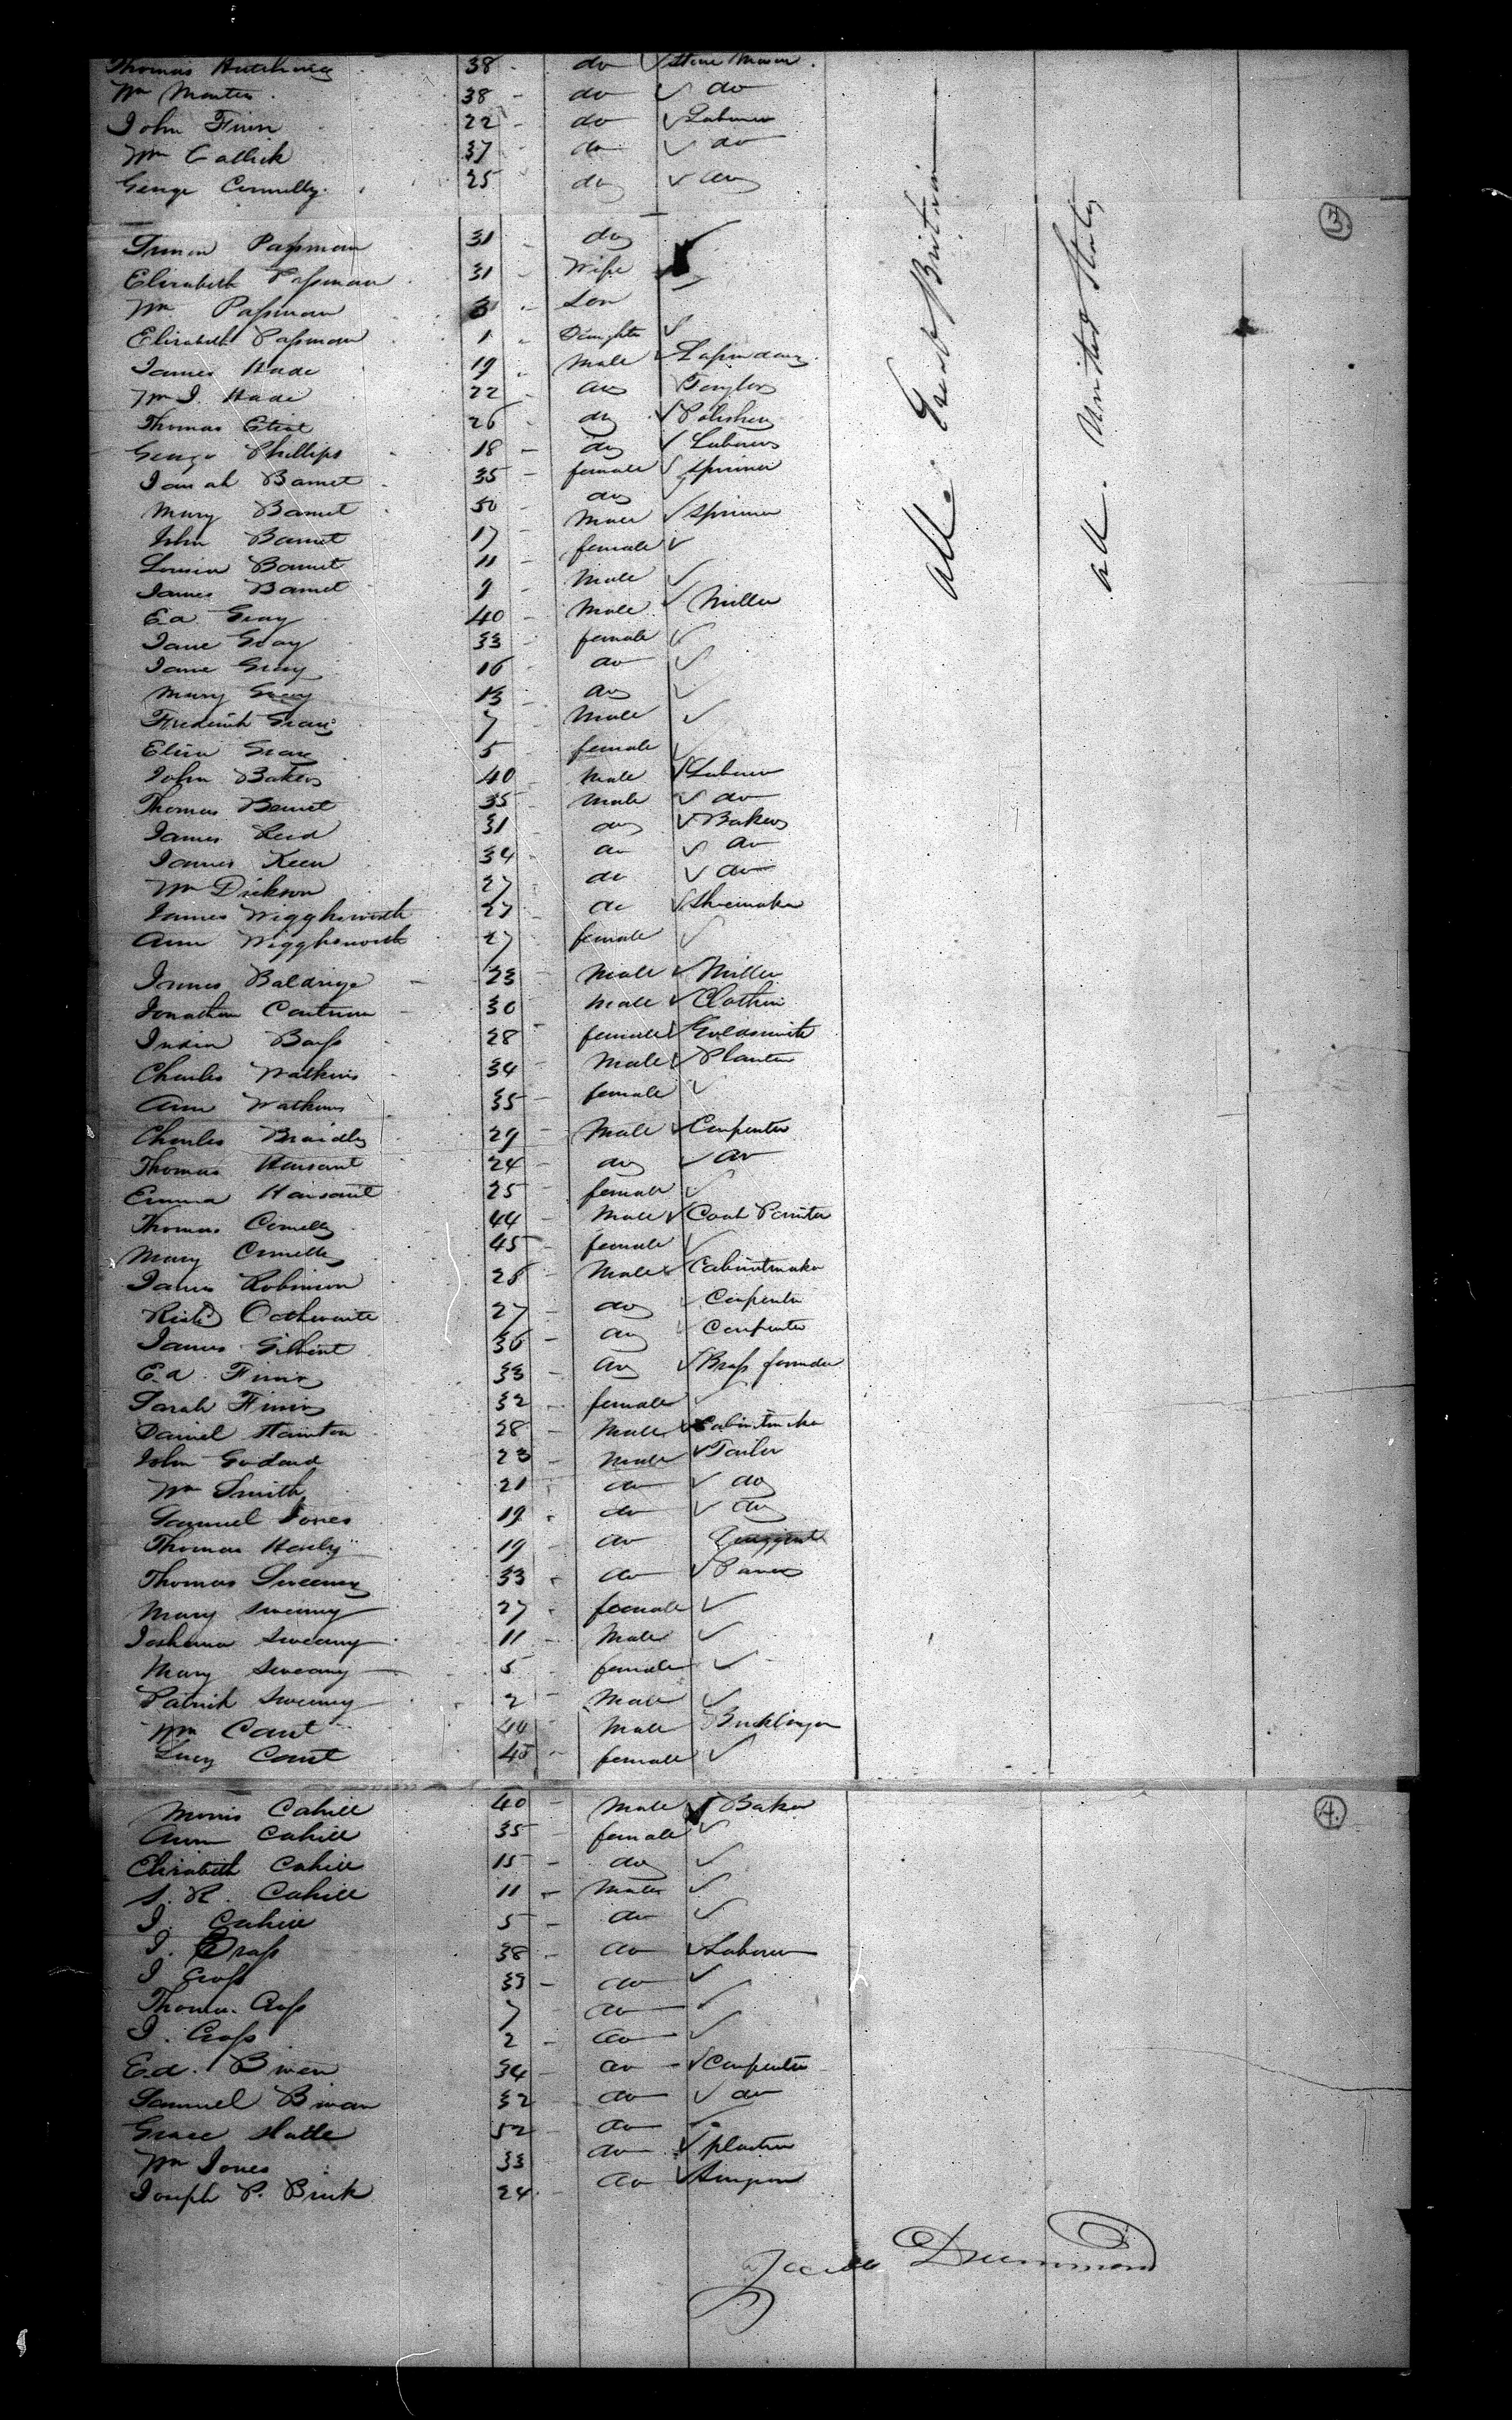 Thomas Hutchings 38 do Stone Mason
Wm 38 do do
John Finn 22 do Laborer
Wm Gallick 37 do do
George Connelly 25 do do
3
Paſsman 31 do
Elizabeth Paſsman 31 Wife
Wm Paſsman Son
Elizabeth Paſsman 1 Daughter
James Hade 19 Male
Wm J. Hade 22 do
Thomas 26 do Polisher
George Phillips 18 do Laborer
Barnet 35 female spinner
Mary Barnet 50 do
John Barnet 17 Male spinner
Louisa Barnet 11 female
James Barnet 9 Male
Ed Gray 40 Male Miller
Jane Gray 33 female
Jane Gray 16 do
Mary Gray 13 do
Frederick Gray 7 Male
Eliza Gray 5 female
John Baker 40 Male Laborer
Thomas Barnet 35 Male do
James Reed 31 do Baker
James Keen 34 do do
Wm Dickson 27 do do
James Wigglesworth 27 do Shoemaker
Ann Wigglesworth 27 female
James Baldrige 23 Male Miller
Jonathan 30 Male Clothier
Baſs 28 female Goldsmith
Charles Watkins 34 Male Planter
Ann Watkins 35 female
Charles 29 Male Carpenter
Thomas Hansant 24 do do
Emma Hansant 25 female
Thomas Connelly 44 Male Coal Painter
Mary Connelly 45 female
James Robinson 28 Male Cabinetmaker
Richd Othwaite 27 do Carpenter
James Gilbert 36 do Carpenter
Ed. Finn 33 do Braſs founder
Sarah Finn 32 female
Daniel Stainton 28 Male Cabinetmaker
John Godard 23 Male Tailor
Wm Smith 21 do do
Samuel Jones 19 do do
Thomas Henly 19 do
Thomas Sweeney 33 do
Mary Sweeney 27 female
Joshua Sweeney 11 Male
Mary Sweeney 5 female
Patrick Sweeney 2 Male
Wm Cant 44 Male Bricklayer
Lucy Cant 45 female
All. Great Britain
All. United States
4.
Morris Cahill 40 Male Baker
Ann Cahill 35 female
Elizabeth Cahill 15 do
S. R. Cahill 11 Male
J. Cahill 5 do
J. Croſs 38 do Laborer
J Croſs 33 do
Thomas Croſs 7 do
J. Croſs 2 do
Ed. Biwen 34 do Carpenter
Samuel Biwan 32 do do
Grace 52 do
Wm Jones 33 do plaster
Joseph P. Brick 24 do Surgeon
Jacob Drummond